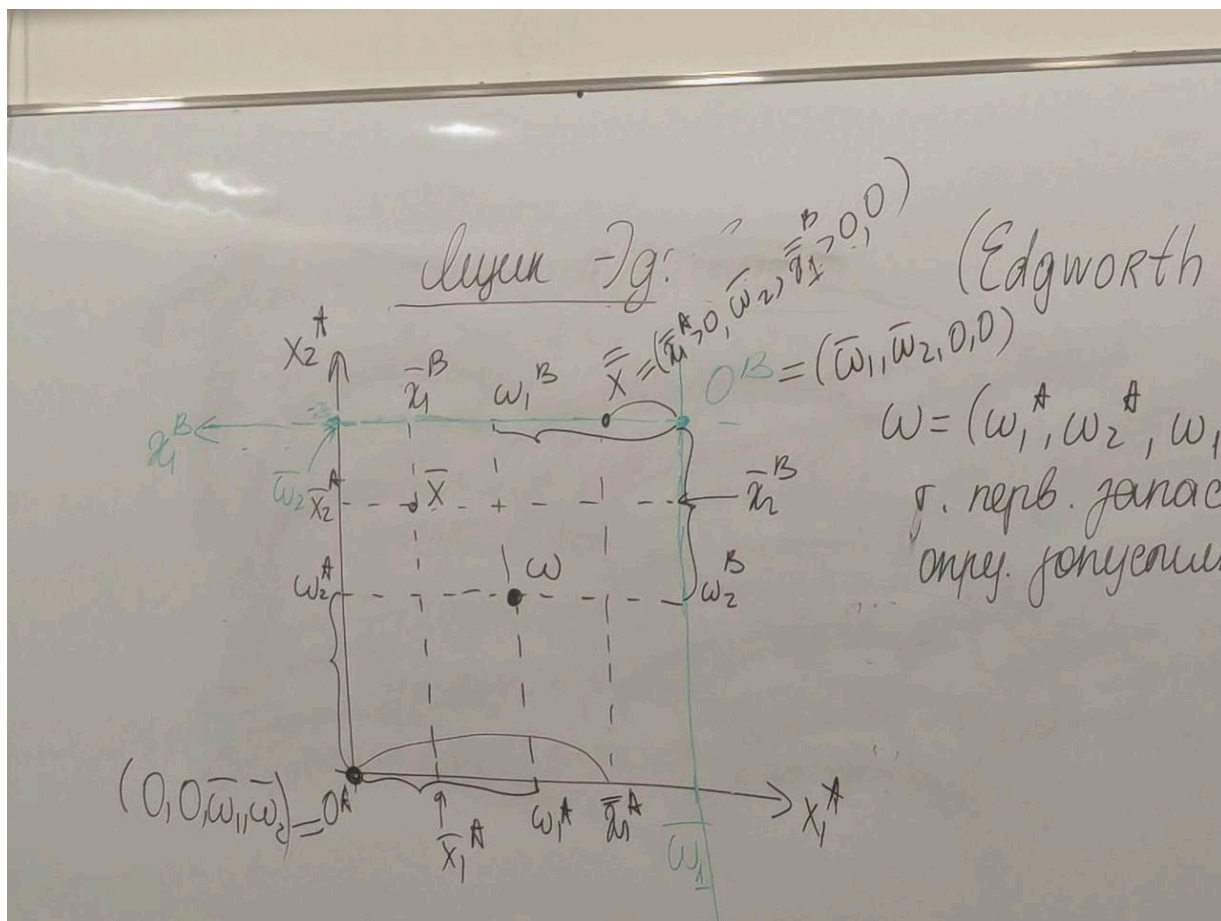 Ящик Эд.
(Edgworth
X̿ = (x̿₁ᴬ > 0, ω̄₂, x̿₁ᴮ > 0, 0)
Oᴮ = (ω̄₁, ω̄₂, 0, 0)
ω = (ω₁ᴬ, ω₂ᴬ, ω₁
т. перв. запас
опр. допустим
x₂ᴬ
x̄₁ᴮ
ω₁ᴮ
x₁ᴮ
ω̄₂
x̄₂ᴬ
x̄
x̄₂ᴮ
ω₂ᴬ
ω
ω₂ᴮ
(0, 0, ω̄₁, ω̄₂) = Oᴬ
x̄₁ᴬ
ω₁ᴬ
x̿₁ᴬ
ω̄₁
x₁ᴬ